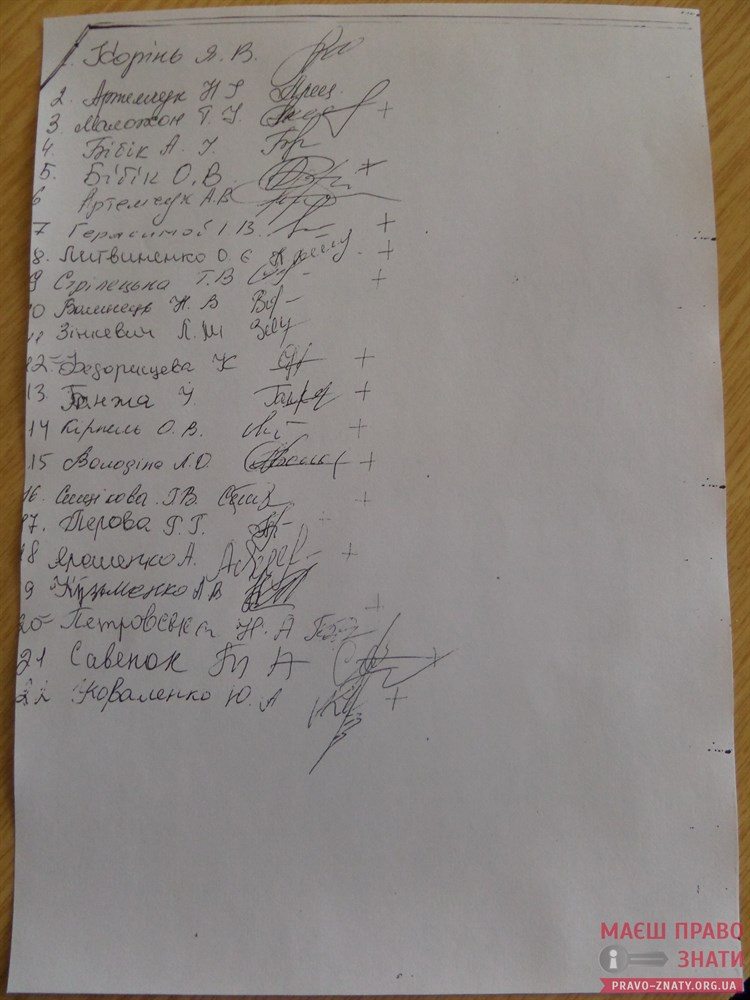 1. Ізорінь Я. В.
2. Артемчук Н І
3 Маложон Т. І +
4. Бібік А. І.
5. Бібік О. В +
6 Артемчук А. В
7 І В. +
8. Литвиненко О. Є +
9 Стрілецька Т. В +
10 Волинець Н. В
11 Зінкевич Л. М
12 Федорищева К +
13 Ганжа І. +
14 Кірпель О. В. +
15 Володіна Л. О +
16. Г. В. +
17. Перова Г. Г. +
18 Ярошенко А. +
19 Кузьменко А В
20 Петровська Н. А +
21 Савенок А +
22 Коваленко Ю. А +
МАЄШ ПРАВО
ЗНАТИ
PRAVO-ZNATY.ORG.UA